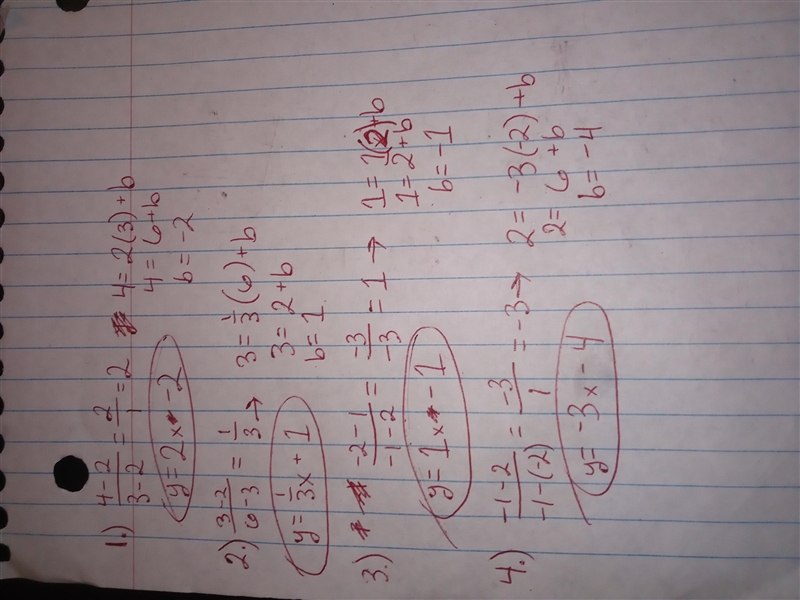 1.) 4-2/3-2 = 2/1 = 2 4 = 2(3) + b
4 = 6 + b
b = -2
y = 2x - 2
2.) 3-2/6-3 = 1/3 → 3 = 1/3 (6) + b
3 = 2 + b
b = 1
y = 1/3x + 1
3.) -2-1/-1-2 = -3/-3 = 1 → 1 = 1(2) + b
1 = 2 + b
b = -1
y = 1x - 1
4.) -1-2/-1-(-2) = -3/1 = -3 → 2 = -3(-2) + b
2 = 6 + b
b = -4
y = -3x - 4